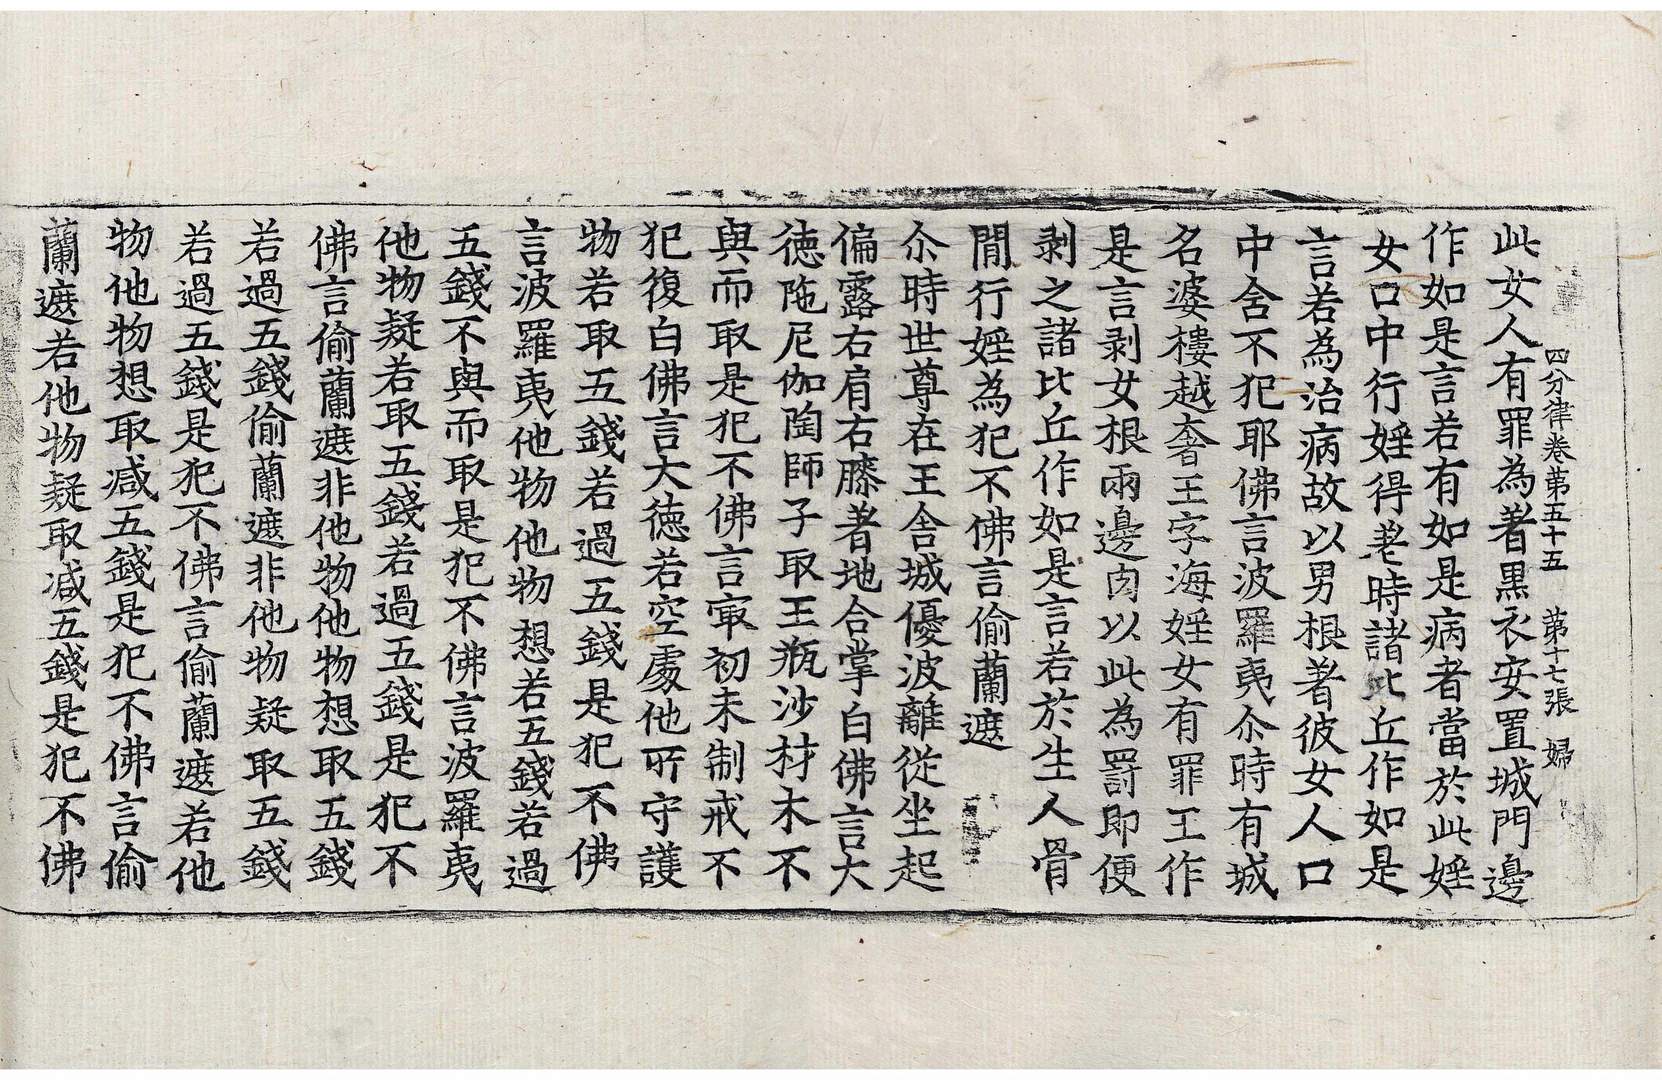 四分律卷第五十五　第十七張　婦
此女人有罪為著黒衣安置城門邊
作如是言若有如是病者當於此婬
女口中行婬得老時諸比丘作如是
言若為治病故以男根著彼女人口
中舍不犯耶佛言波羅夷尒時有城
名婆樓越奢王字海婬女有罪王作
是言剥女根兩邊肉以此為罰即便
剥之諸比丘作如是言若於生人骨
間行婬為犯不佛言偷蘭遮
尒時世尊在王舍城優波離從坐起
偏露右肩右膝著地合掌白佛言大
徳陁尼伽陶師子取王瓶沙材木不
與而取是犯不佛言㝡初未制戒不
犯復白佛言大徳若空處他所守護
物若取五錢若過五錢是犯不佛
言波羅夷他物他物想若五錢若過
五錢不與而取是犯不佛言波羅夷
他物疑若取五錢若過五錢是犯不
佛言偷蘭遮非他物他物想取五錢
若過五錢偷蘭遮非他物疑取五錢
若過五錢是犯不佛言偷蘭遮若他
物他物想取减五錢是犯不佛言偷
蘭遮若他物疑取减五錢是犯不佛